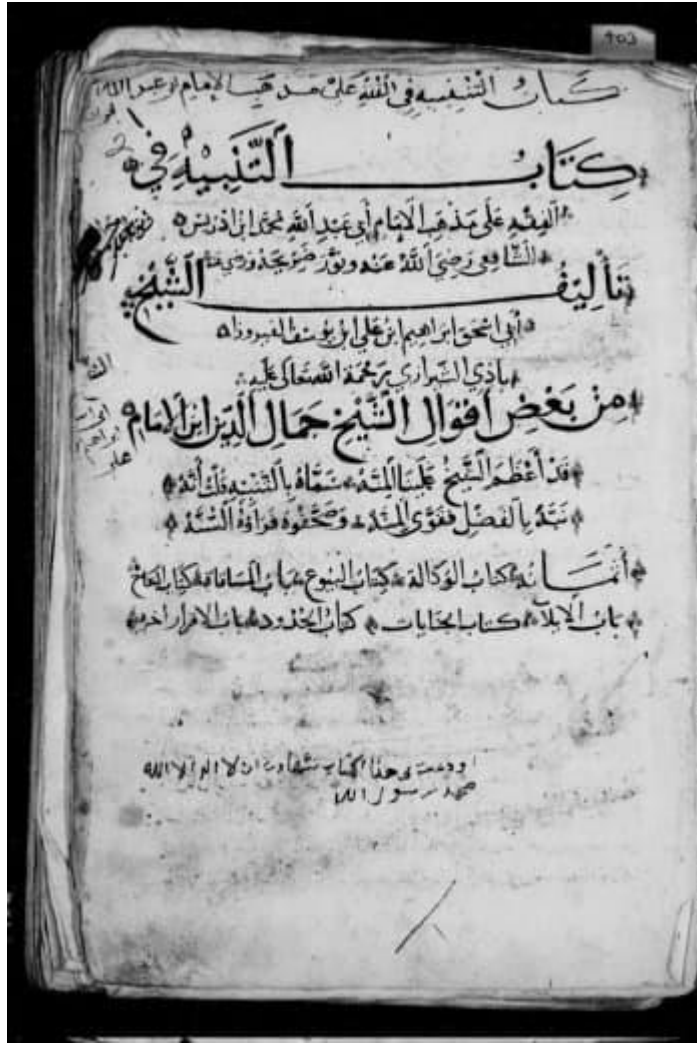 903
كتاب التنبيه في الفقه على مذهب الإمام ابو عبد الله
2
كِتَابُ التَّنبِيْهِ فِي
الفِقْهِ عَلَى مَذْهَبِ الإِمَامِ أَبِي عَبْدِ اللَّهِ مُحَمَّد ابْن اِدْرِيْس
الشَّافِعِي رَضِيَ اللَّهُ عَنْهُ وَنَوَّرَ ضَرِيْحَهُ
تَأْلِيْفُ الشَّيْخ
أَبِي اسْحَق ابْرَاهِيم ابْن عَلِي ابْن يُوْسُف الفيروزا
باذي الشيرازي رَحْمَة اللَّه تَعَالَى عَلَيه
مِنْ بَعْضِ أَقْوَالِ الشَّيْخ جَمَالِ الدِّينِ ابْنِ الإِمَامِ
قَدْ أَعْظَمَ الشَّيْخُ عَلَيْنَا المِنَّهْ سَمَّاهُ بِالتَّنْبِيهِ قُلْتُ أَنَّهْ
بِالفَضْلِ وَصَحَّفُوهُ السُّنَّهْ
كتاب الوكالة كتاب البيوع باب المساقاة كتاب النكاح
باب الايلاء كتاب الجنايات كتاب الحدود باب الاقرار
اودعت في هذا الكتاب شهادة ان لا اله الا الله
محمد رسول الله